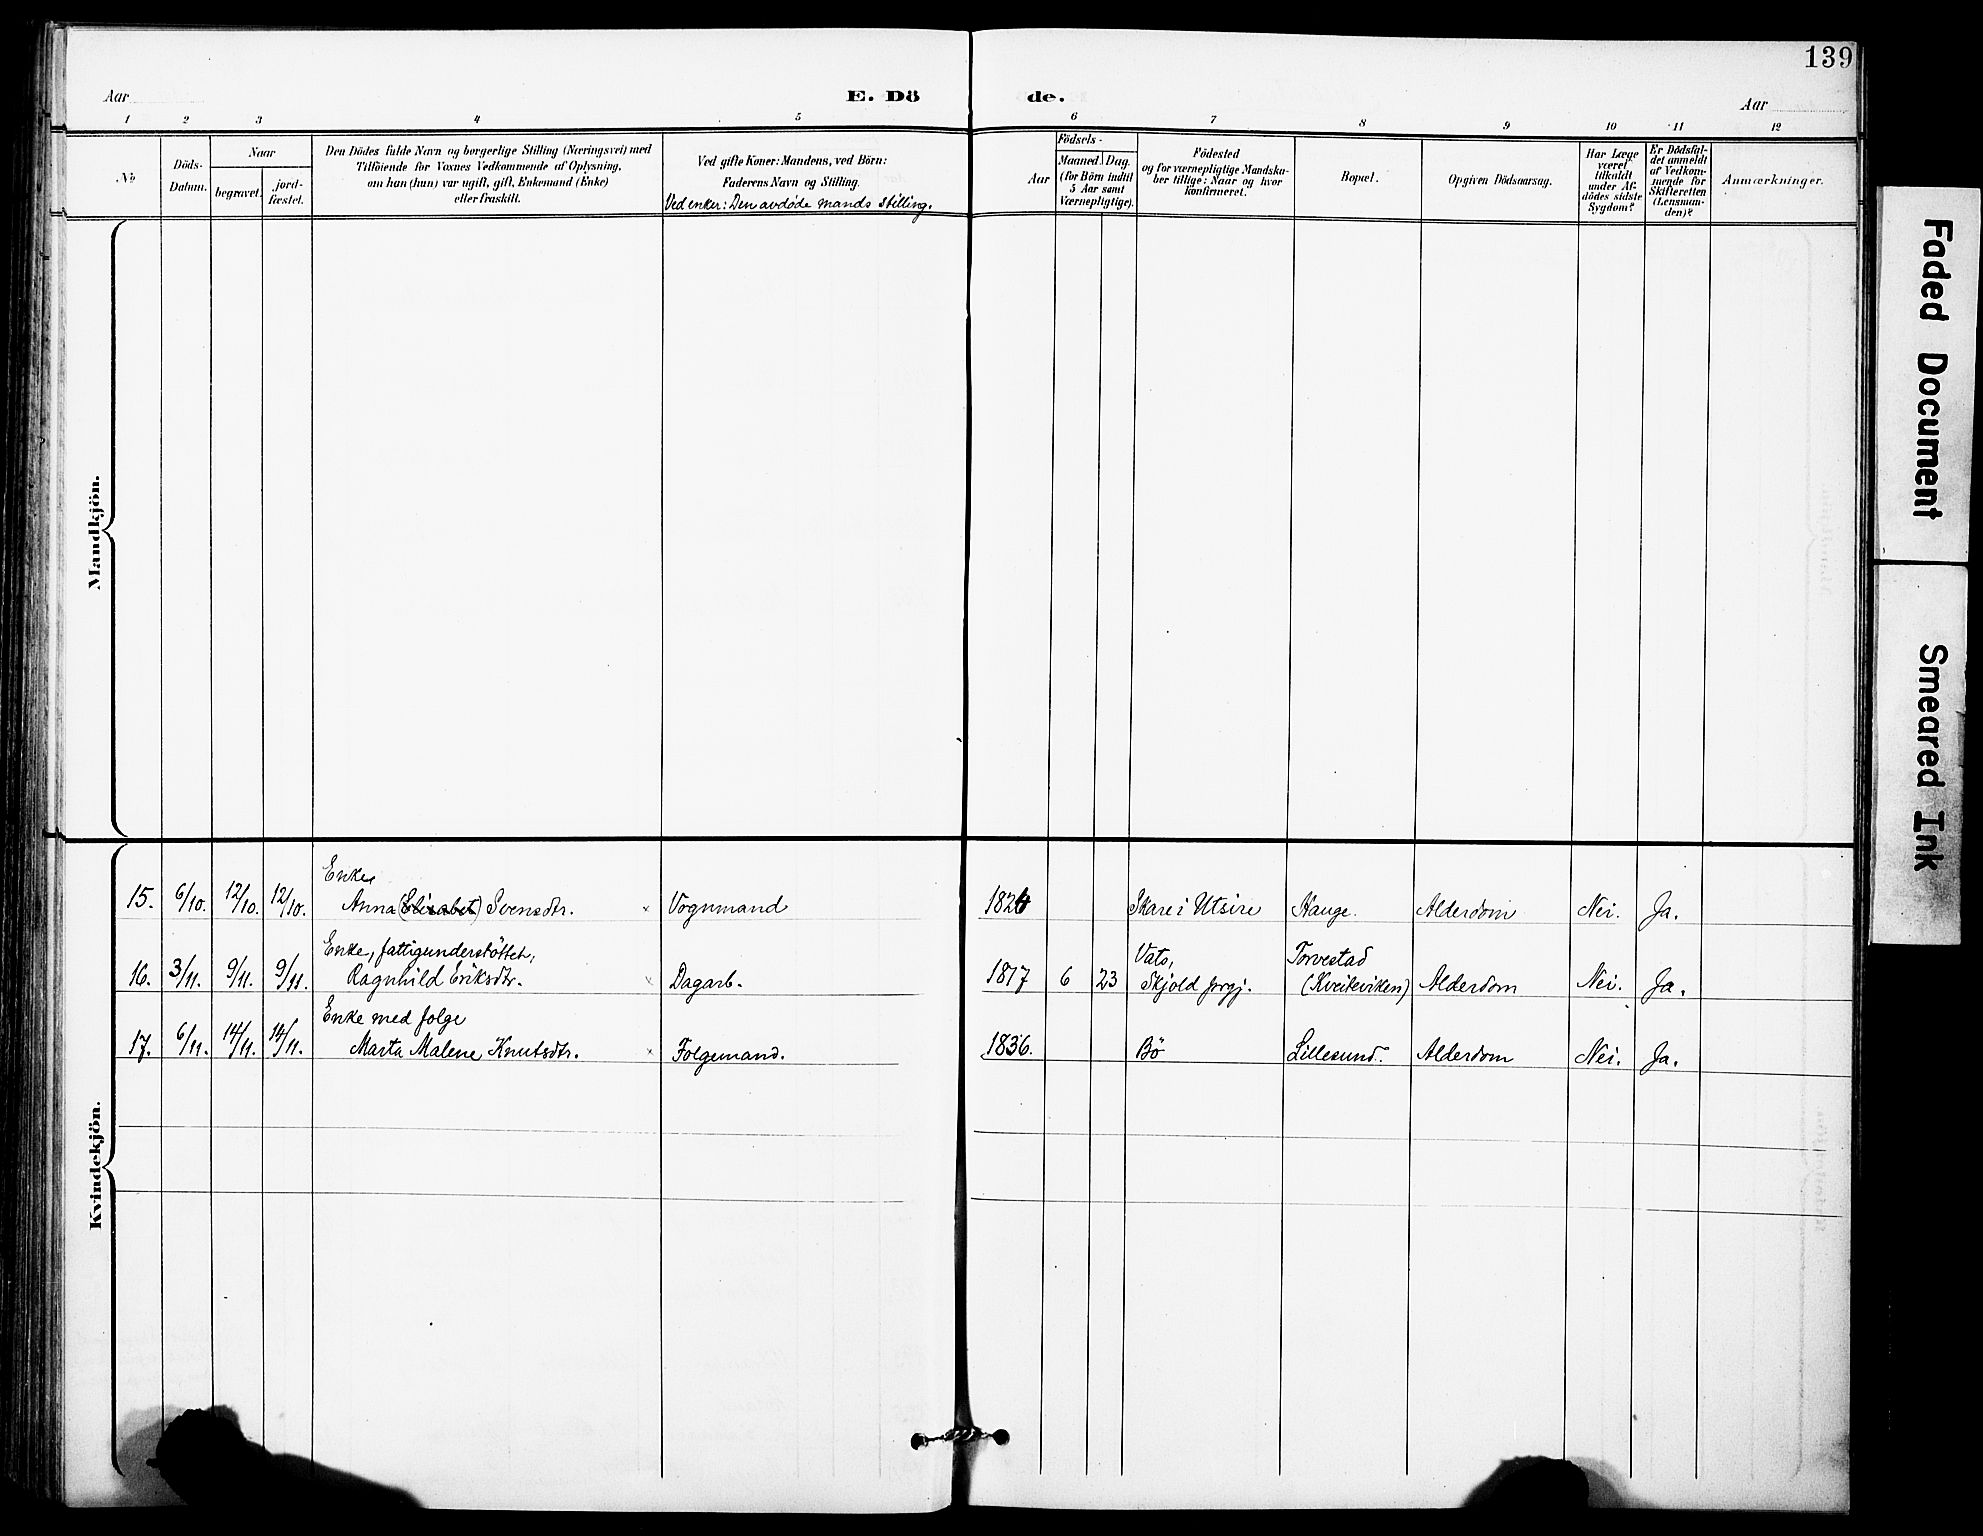 139
Aar
E. Dö de.
Aar
1 2 3 4 5 6 7 8 9 10 11 12
No
Döds-
Datum.
Naar
begravet.
jord-
fæstet.
Den Dödes fulde Navn og borgerlige Stilling (Næringsvei) med
Tilföiende for Voxnes Vedkommende af Oplysning,
om han (hun) var ugift, gift, Enkemand (Enke)
eller fraskilt.
Ved gifte Koner: Mandens, ved Börn:
Faderens Navn og Stilling.
Ved enker: Den avdøde mands stilling.
Födsels-
Aar
Maaned Dag.
(for Börn indtil
5 Aar samt
Værnepligtige).
Födested
og for værnepligtige Mandska-
ber tillige: Naar og hvor
konfirmeret.
Bopæl.
Opgiven Dödsaarsag.
Har Læge
været
tilkaldt
under Af-
dödes sidste
Sygdom?
Er Dödsfal-
det anmeldt
af Vedkom-
mende for
Skifteretten
(Lensman-
den)?
Anmærkninger.
Mandkjön.
Enke
15. 6/10. 12/10. 12/10. Anna (Elisabet) Svensdtr. Vognmand Skare i Utsire Hauge. Alderdom Nei. Ja.
Enke, fattigunderstöttet, Vats, Torvestad
16. 3/11. 9/11. 9/11. Ragnhild Eriksdtr. Dagarb. 1817 6 23 Skjold prgj. (Kveikeviken) Alderdom Nei. Ja.
Enke med folge
17. 6/11. 14/11. 14/11. Marta Malene Knutsdtr. Folgemand. 1836. Bö Lillesund. Alderdom Nei. Ja.
Kvindekjön.
Faded Document
Smeared Ink